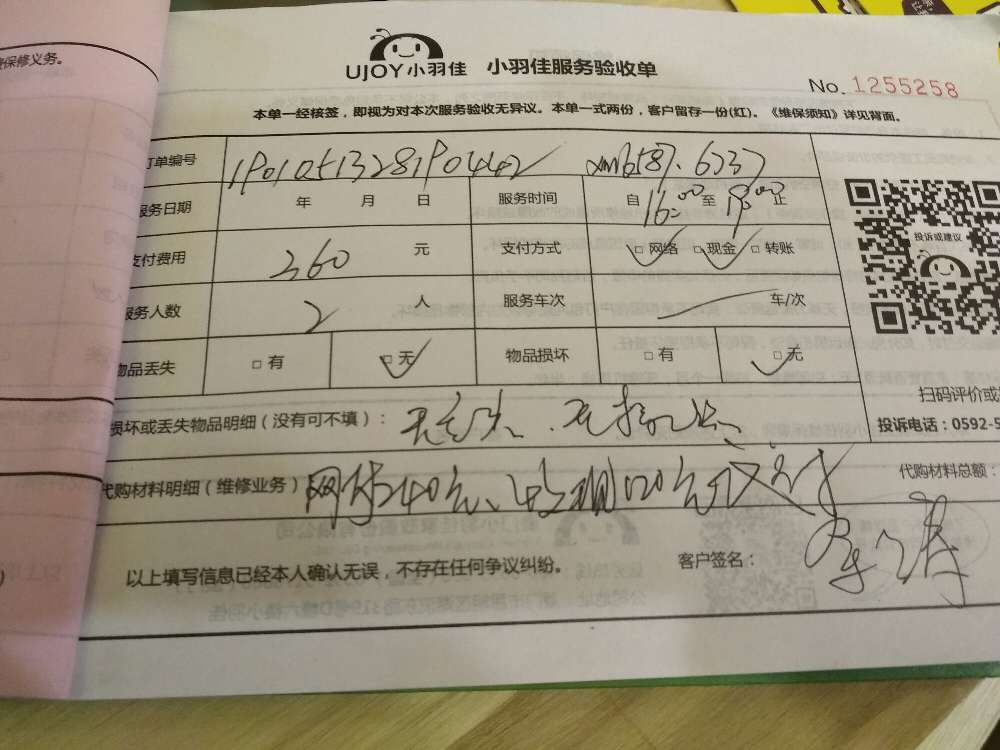 保修义务。
UJOY小羽佳 小羽佳服务验收单
No. 1255258
本单一经核签，即视为对本次服务验收无异议。本单一式两份，客户留存一份(红)。《维保须知》详见背面。
订单编号
服务日期 年 月 日 服务时间 自 16:00 至 18:00 止
支付费用 360 元 支付方式 □网络 □现金 □转账
服务人数 2 人 服务车次 车/次
物品丢失 □有 □无 物品损坏 □有 □无
投诉或建议
扫码评价或
投诉电话：0592-5
损坏或丢失物品明细（没有可不填）： 无丢失、无损坏
代购材料明细（维修业务） 网付240元、收现120元
代购材料总额：
以上填写信息已经本人确认无误，不存在任何争议纠纷。 客户签名：